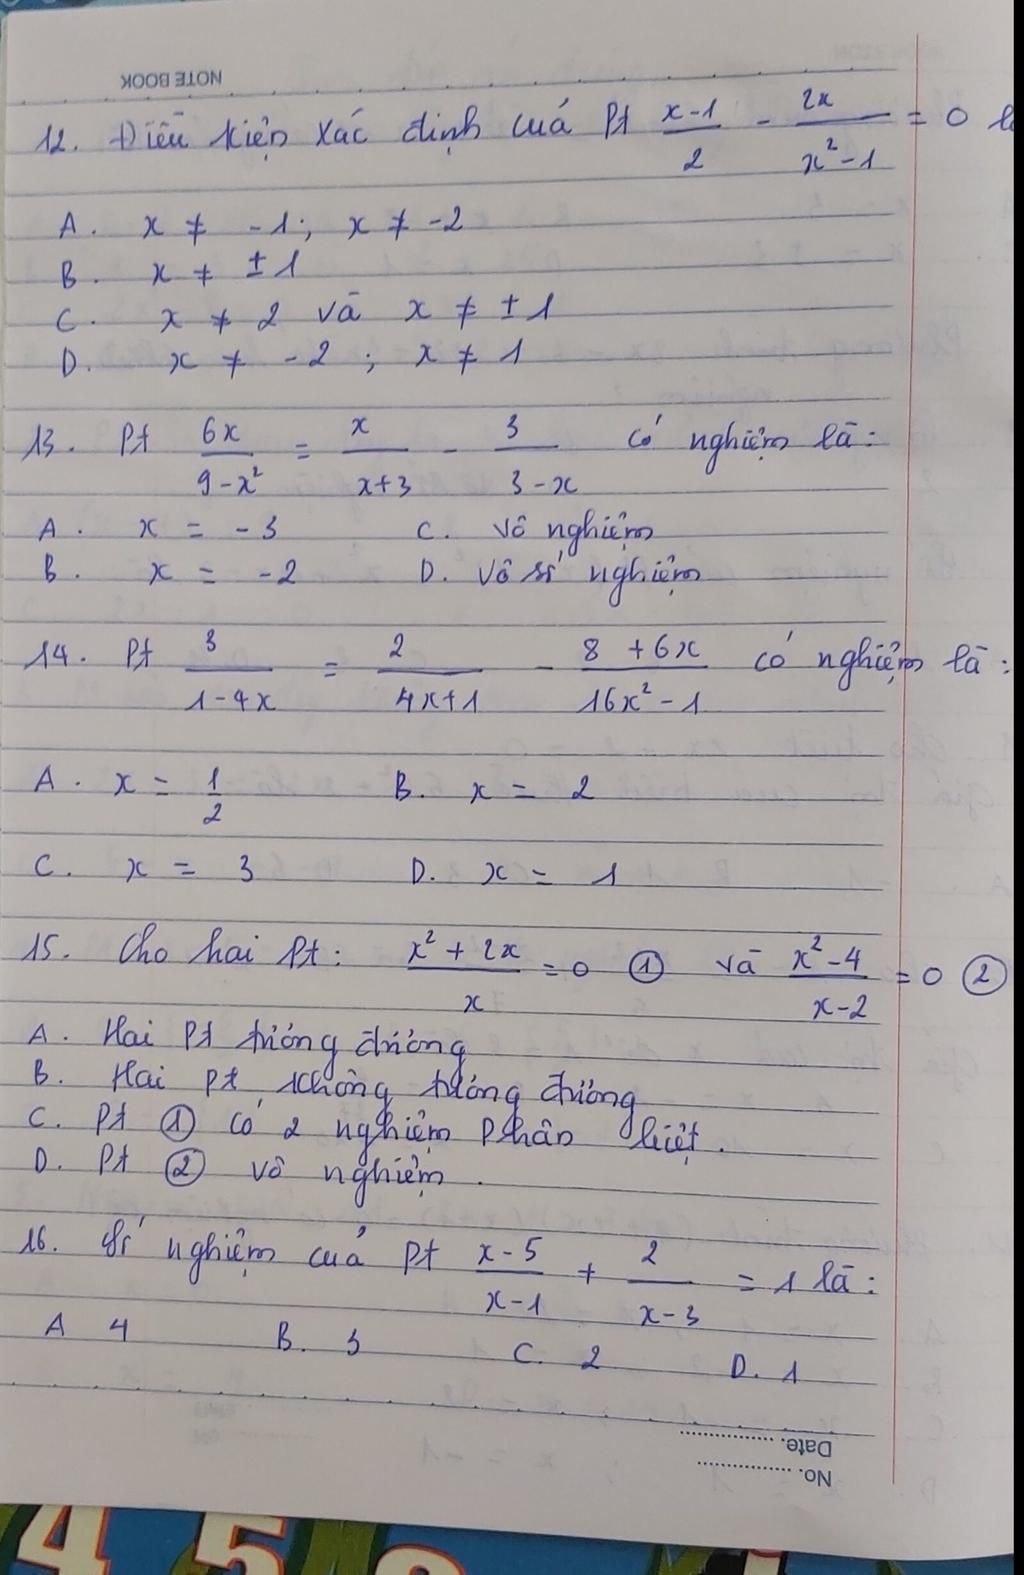 NOTE BOOK
12. Điều kiện xác định của Pt (x-1)/2 - 2x/(x²-1) = 0 l
A. x ≠ -1; x ≠ -2
B. x ≠ ±1
C. x ≠ 2 và x ≠ ±1
D. x ≠ -2 ; x ≠ 1
13. Pt 6x/(9-x²) = x/(x+3) - 3/(3-x) có nghiệm là:
A. x = -3 C. vô nghiệm
B. x = -2 D. vô số nghiệm
14. Pt 3/(1-4x) = 2/(4x+1) - (8+6x)/(16x²-1) có nghiệm là:
A. x = 1/2 B. x = 2
C. x = 3 D. x = 1
15. Cho hai Pt: (x²+2x)/x = 0 ① và (x²-4)/(x-2) = 0 ②
A. Hai Pt tương đương
B. Hai pt không tương đương
C. Pt ① có 2 nghiệm phân biệt.
D. Pt ② vô nghiệm.
16. Số nghiệm của pt (x-5)/(x-1) + 2/(x-3) = 1 là:
A 4 B. 3 C. 2 D. 1
Date. ............
No. ............
4 5